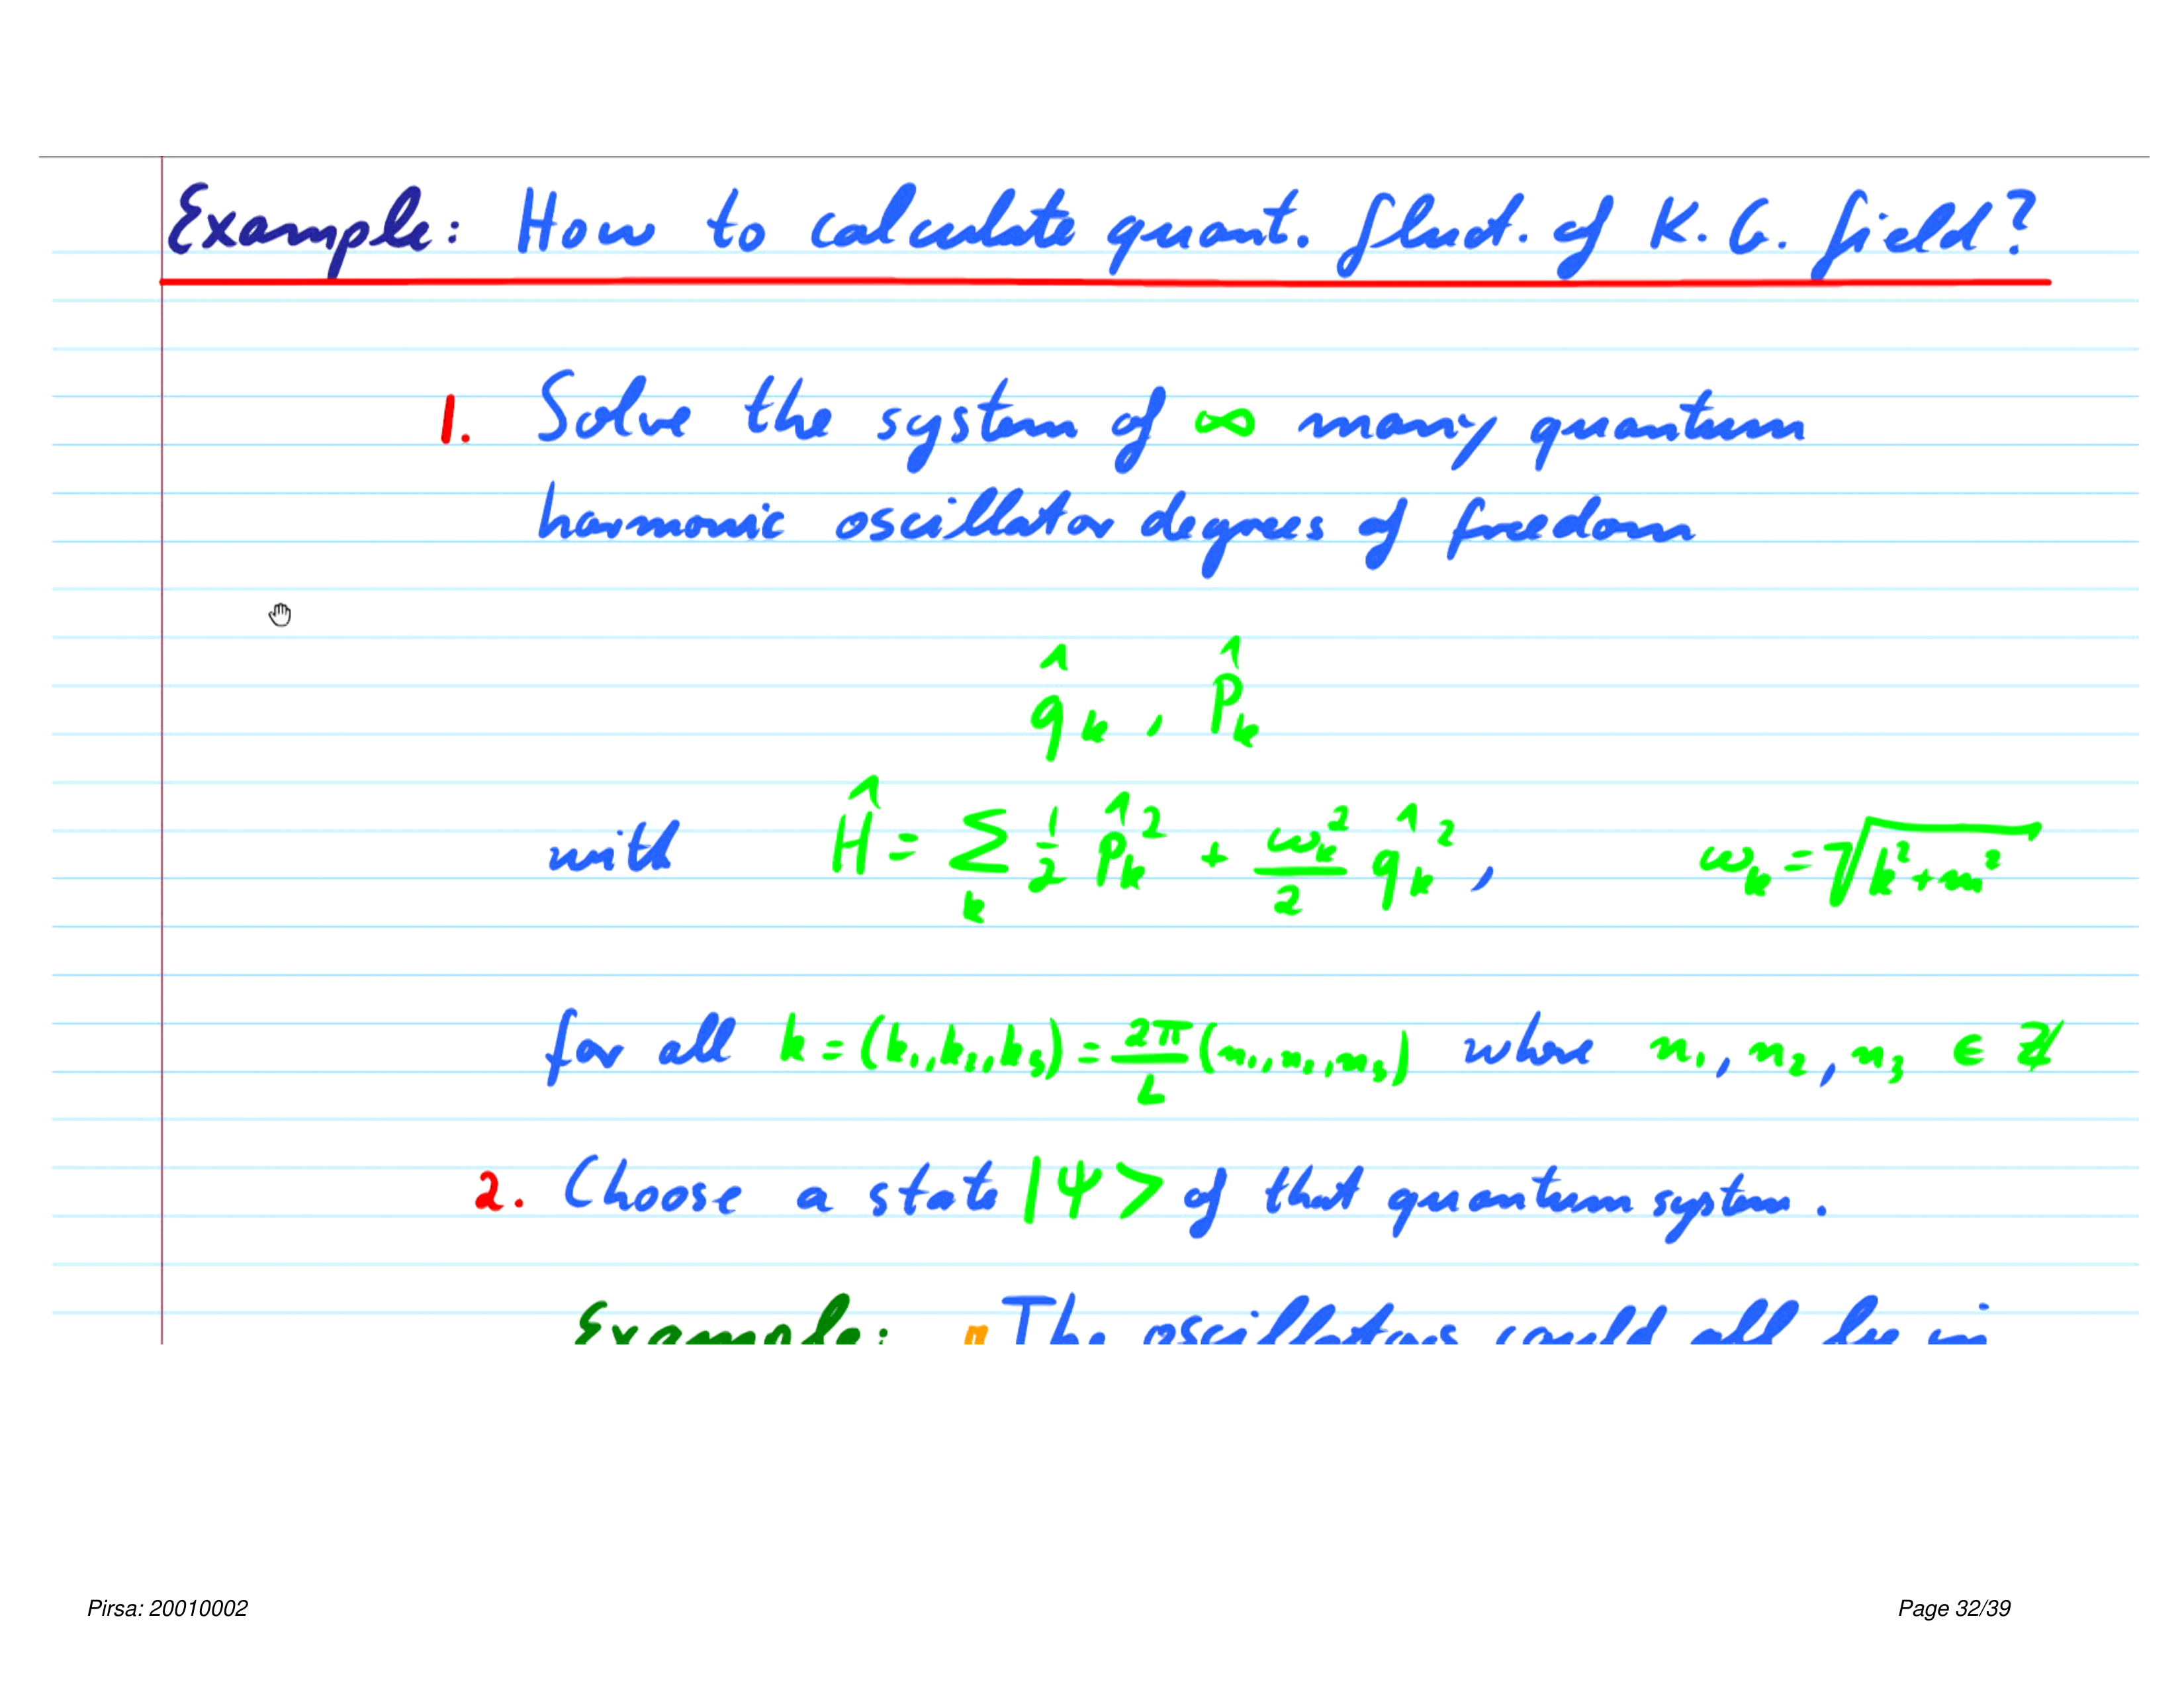 Example: How to calculate quant. fluct. of K. G. field?
1. Solve the system of ∞ many quantum
harmonic oscillator degrees of freedom
q̂_k , p̂_k
with Ĥ = Σ_k 1/2 p̂_k² + ω_k²/2 q̂_k² , ω_k = √(k²+m²)
for all k = (k₁,k₂,k₃) = 2π/L (n₁,n₂,n₃) where n₁, n₂, n₃ ∈ ℤ
2. Choose a state |Ψ> of that quantum system.
Example: The oscillators could all be in
Pirsa: 20010002
Page 32/39